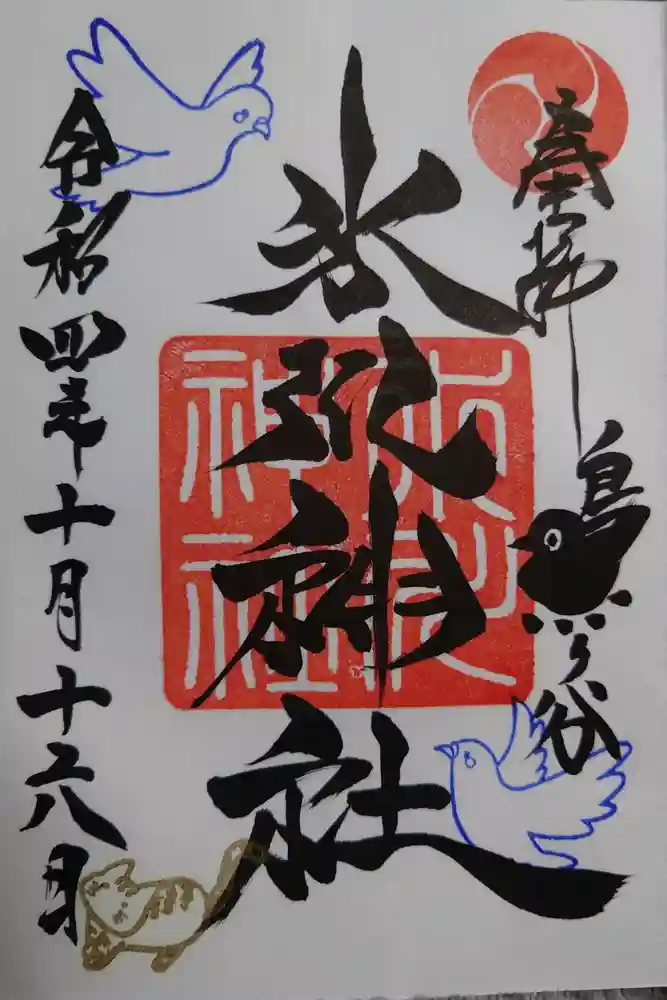 奉拝
鳩ヶ谷
氷川神社
氷川神社
令和四年十月十六日